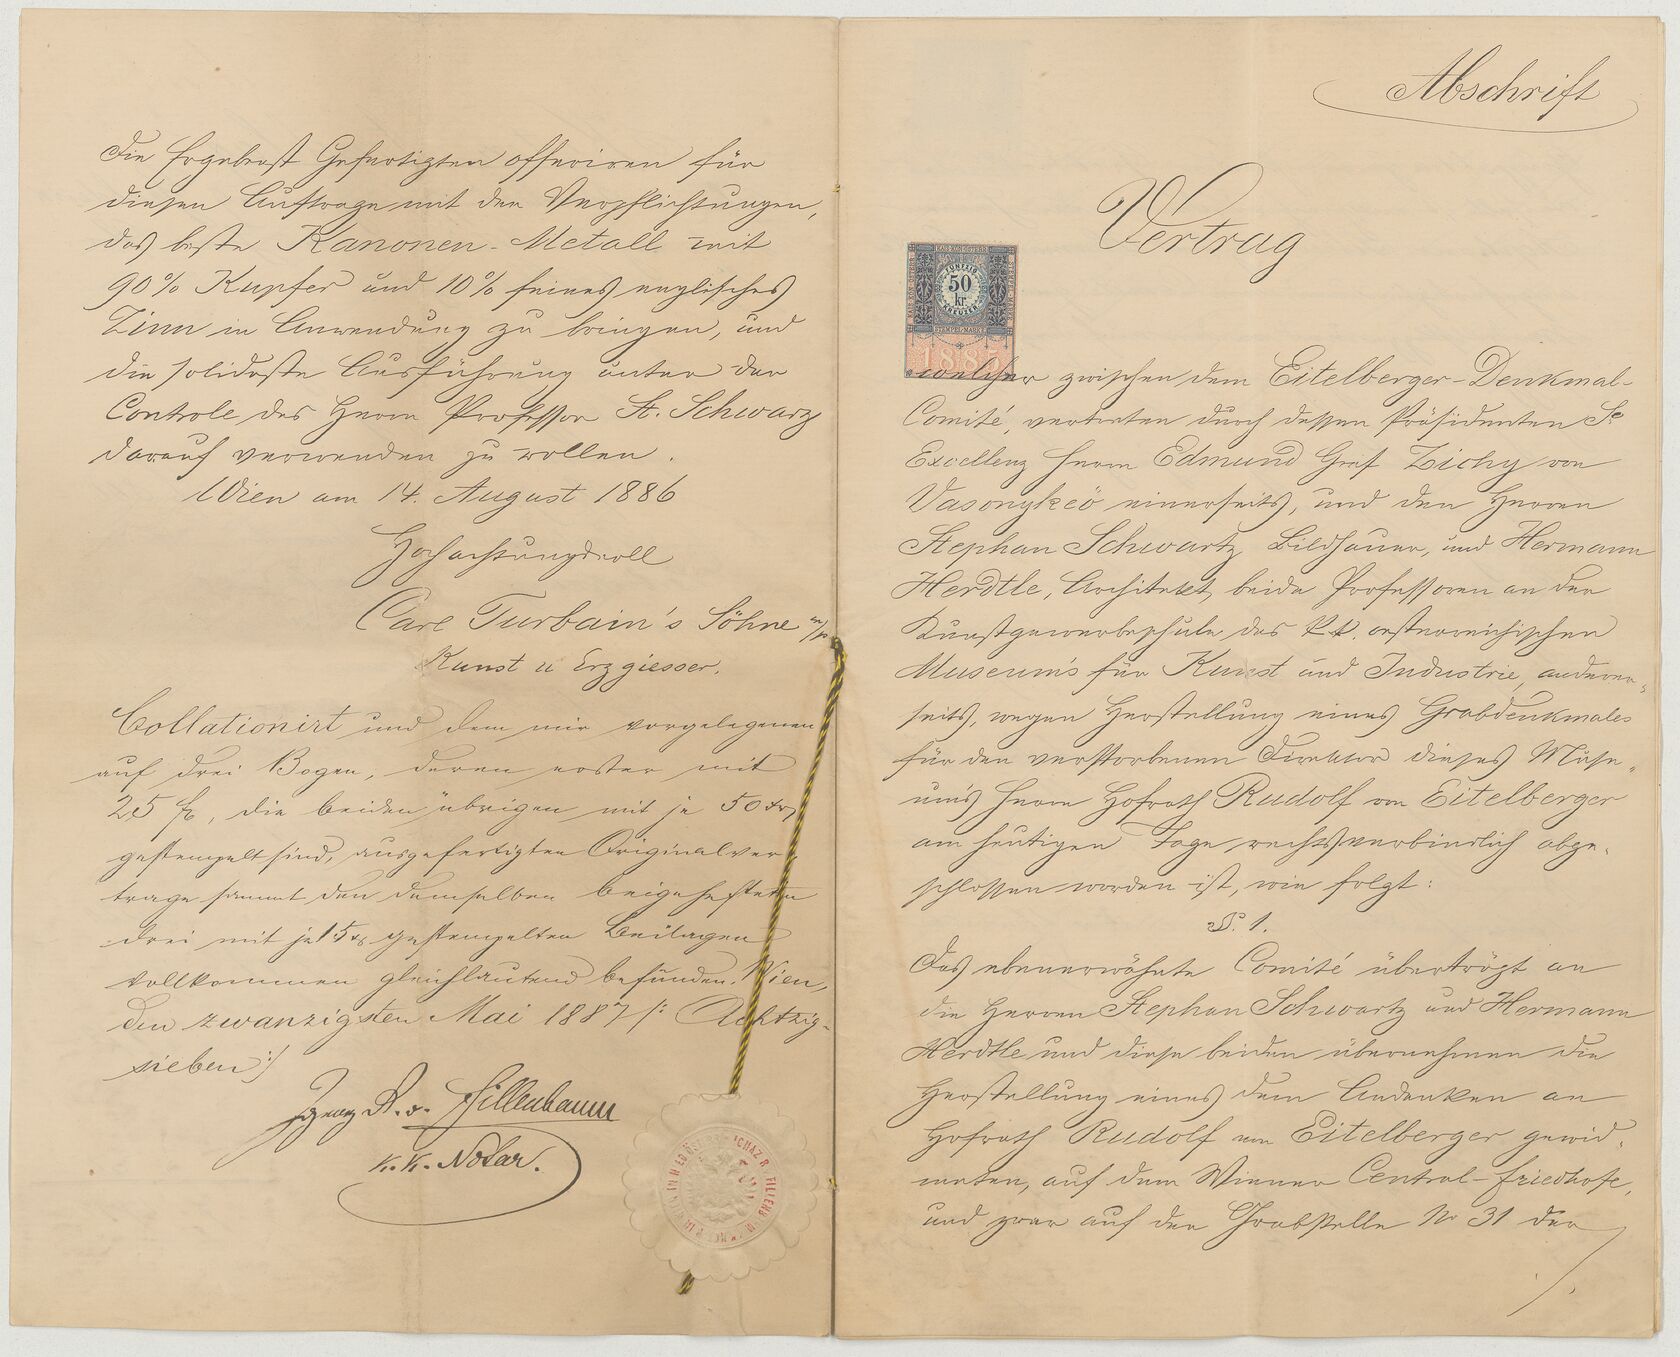 Die Ergebenst Gefertigten offeriren für
diesen Auftrage mit den Verpflichtungen,
das beste Kanonen-Metall mit
90% Kupfer und 10% feines englisches
Zinn in Anwendung zu bringen, und
die solideste Ausführung unter der
Controle des Herrn Professor St. Schwarz
darauf verwenden zu wollen.
Wien am 14. August 1886
Hochachtungsvoll
Carl Turbain's Söhne m/p
Kunst u Erzgiesser.
Collationirt und dem mir vorgelegenen
auf drei Bogen, deren erster mit
25 f, die beiden übrigen mit je 50 xr
gestempelt sind, ausgefertigten Originalver-
trage sammt den demselben beigehefteten
drei mit je 15 xr gestempelten Beilagen
vollkommen gleichlautend befunden. Wien,
den zwanzigsten Mai 1887 /: Achtzig-
sieben :/
Ignaz R. v. Fillenbaum
k. k. Notar.
Abschrift
Vertrag
KAIS. KÖN. ÖSTERR.
FÜNFZIG
50
kr
KREUZER
STEMPEL-MARKE
1885
welcher zwischen dem Eitelberger-Denkmal-
Comité, vertreten durch dessen Präsidenten Se
Excellenz Herrn Edmund Graf Zichy von
Vasonykeö einerseits, und den Herren
Stephan Schwartz Bildhauer, und Hermann
Herdtle, Architekt, beide Professoren an der
Kunstgewerbeschule des k. k. oesterreichischen
Museum's für Kunst und Industrie, anderer-
seits, wegen Herstellung eines Grabdenkmales
für den verstorbenen Direktor dieses Muse-
um's Herrn Hofrath Rudolf von Eitelberger
am heutigen Tage rechtsverbindlich abge-
schlossen worden ist, wie folgt:
§. 1.
Das ebenerwähnte Comité überträgt an
die Herren Stephan Schwartz und Hermann
Herdtle und diese beiden übernehmen die
Herstellung eines dem Andenken an
Hofrath Rudolf von Eitelberger gewid-
meten, auf dem Wiener Central-Friedhofe,
und zwar auf der Grabstelle No 31 der